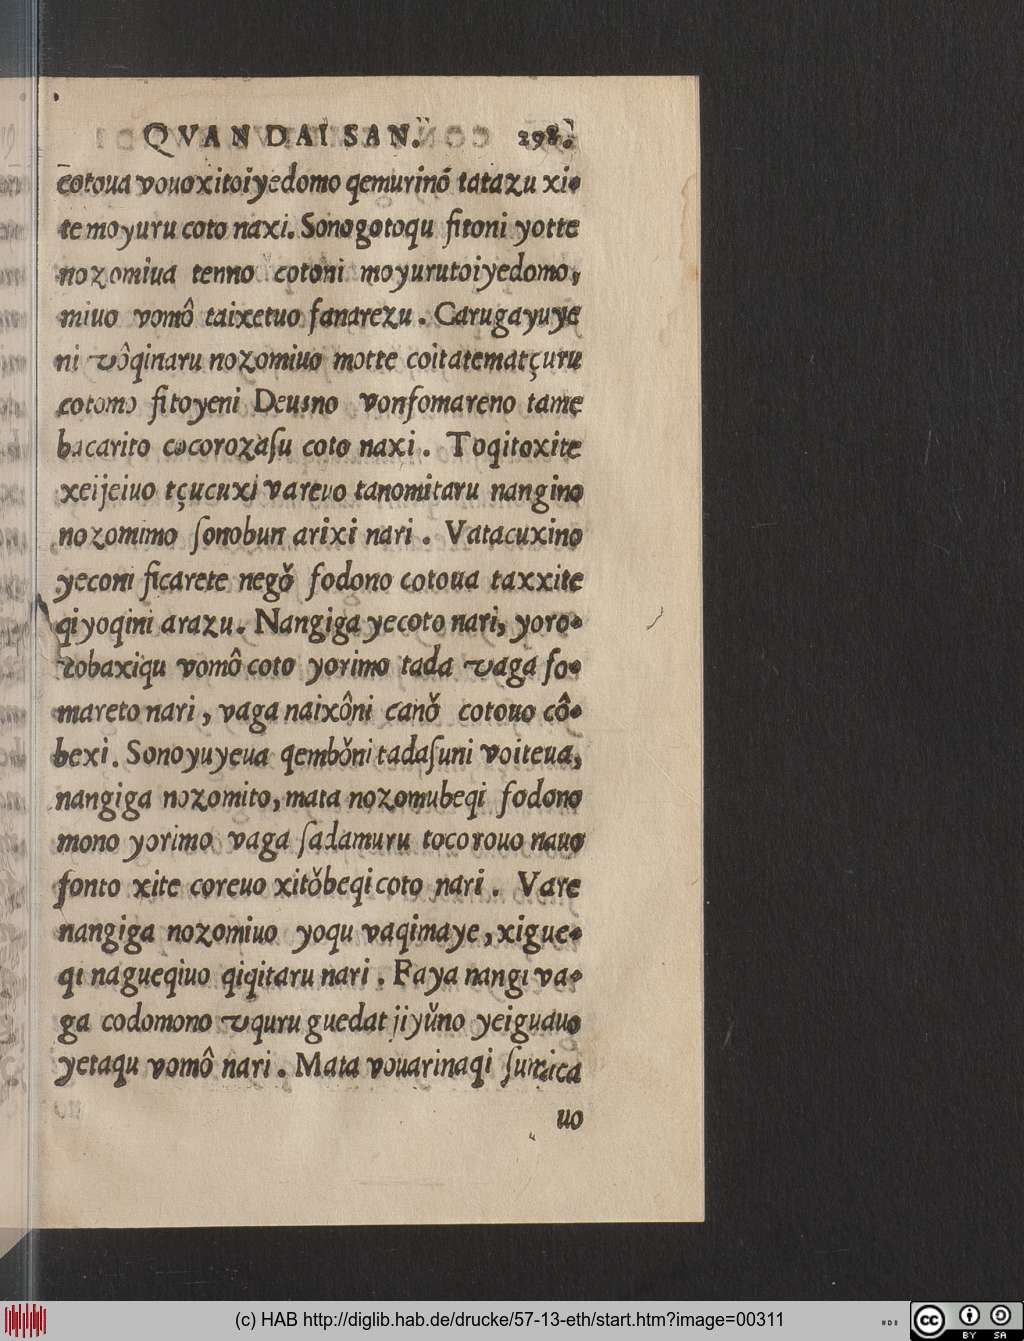 QVANDAI SAN. 298.
cotoua vouoxitoiyedomo qemurinó tatazu xi-
te moyuru coto naxi. Sonogotoqu fitoni yotte
nozomiua tenno cotoni moyurutoiyedomo,
miuo vomô taixetuo fanarezu. Carugayuye
ni vôqinaru nozomiuo motte coitatematçuru
cotomo fitoyeni Deusno vonfomareno tame
bacarito cocorozaſu coto naxi. Toqitoxite
xeijeiuo tçucuxi vareuo tanomitaru nangino
nozomimo ſonobun arixi nari. Vatacuxino
yeconi ficarete negǒ fodono cotoua taxxite
qiyoqini arazu. Nangiga yecoto nari, yoro-
cobaxiqu vomô coto yorimo tada vaga fo-
mareto nari, vaga naixôni canǒ cotouo cô-
bexi. Sonoyuyeua qembǒni tadaſuni voiteua,
nangiga nozomito, mata nozomubeqi fodono
mono yorimo vaga ſadamuru tocorouo nauo
fonto xite coreuo xitǒbeqi coto nari. Vare
nangiga nozomiuo yoqu vaqimaye, xigue-
qi nagueqiuo qiqitaru nari. Faya nangi va-
ga codomono vquru guedat jiyǔno yeiguauo
yetaqu vomô nari. Mata vouarinaqi ſumica
uo
(c) HAB http://diglib.hab.de/drucke/57-13-eth/start.htm?image=00311
cc BY SA